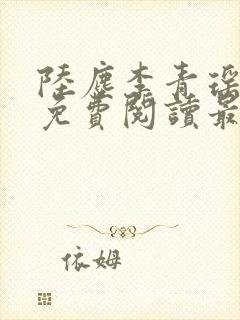 陸塵李青瑤
免費閱讀最
依姆